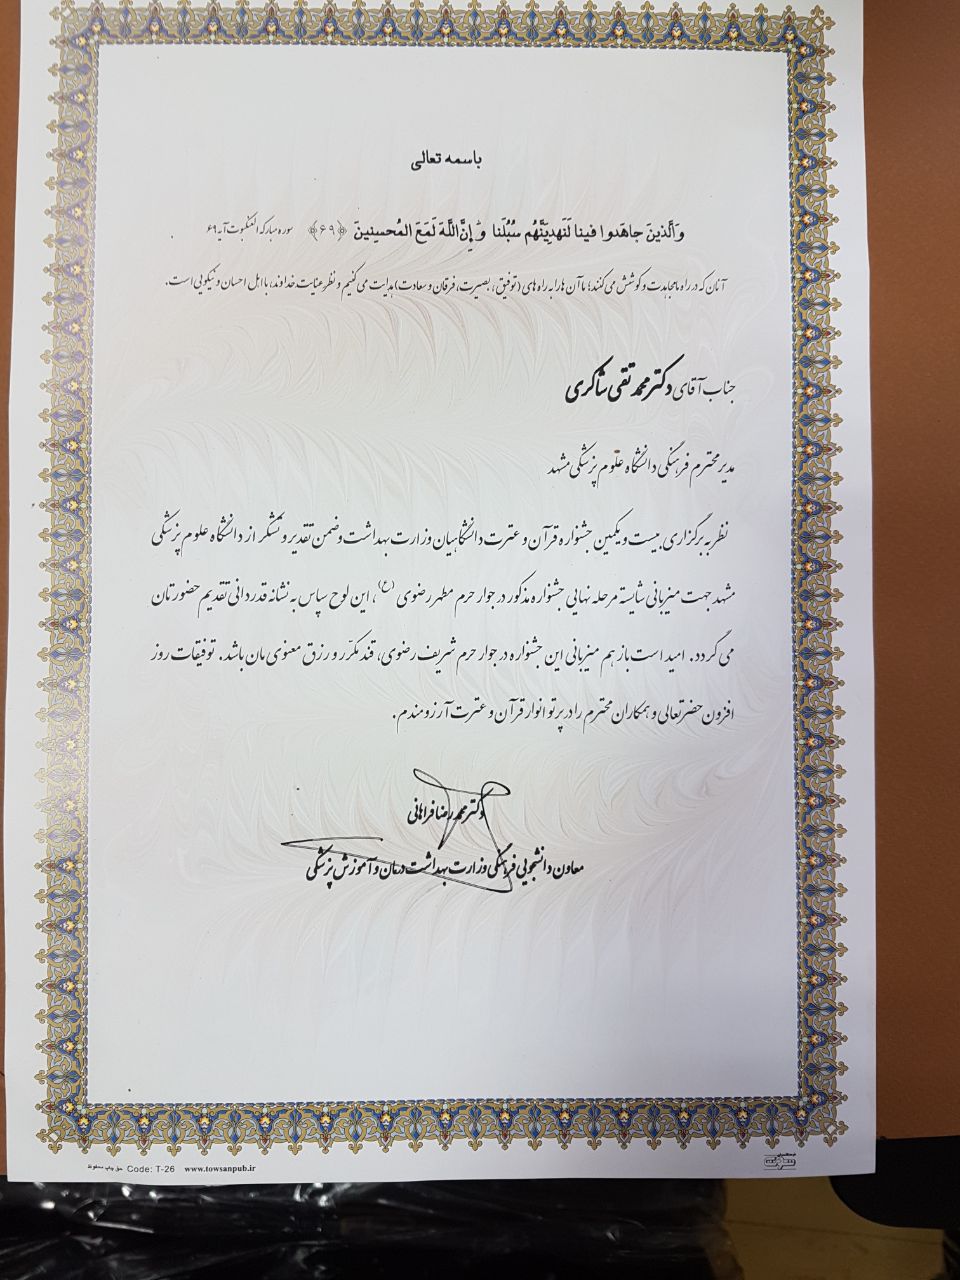 باسمه تعالی
وَالَّذينَ جاهَدوا فينا لَنَهدِيَنَّهُم سُبُلَنا ۚ وَإِنَّ اللَّهَ لَمَعَ المُحسِنينَ ﴿۶۹﴾ سوره مبارکه العنکبوت آیه ۶۹
آنان که در راه ما مجاهدت و کوشش می کنند؛ ما آن ها را به راه های (توفیق، بصیرت، فرقان و سعادت) هدایت می کنیم و نظر عنایت خداوند، با اهل احسان و نیکویی است.
جناب آقای دکتر محمد تقی شاکری
مدیر محترم فرهنگی دانشگاه علوم پزشکی مشهد
نظر به برگزاری بیست و یکمین جشنواره قرآن و عترت دانشگاهیان وزارت بهداشت و ضمن تقدیر و تشکر از دانشگاه علوم پزشکی
مشهد جهت میزبانی شایسته مرحله نهایی جشنواره مذکور در جوار حرم مطهر رضوی (ع)، این لوح سپاس به نشانه قدردانی تقدیم حضورتان
می گردد. امید است باز هم میزبانی این جشنواره در جوار حرم شریف رضوی، قند مکرّر و رزق معنوی مان باشد. توفیقات روز
افزون حضرتعالی و همکاران محترم را در پرتو انوار قرآن و عترت آرزومندم.
دکتر محمدرضا فراهانی
معاون دانشجویی فرهنگی وزارت بهداشت درمان و آموزش پزشکی
حق چاپ محفوظ Code: T-26 www.towsanpub.ir